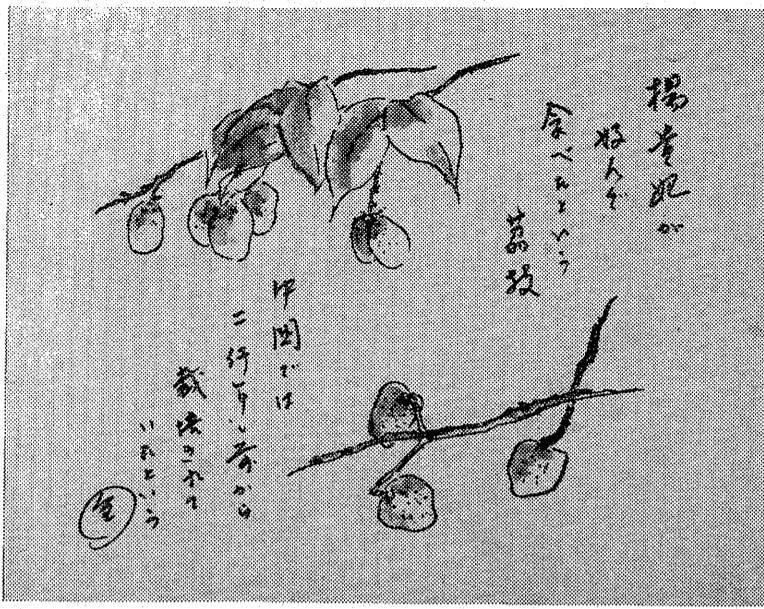 楊貴妃が
好んで
食べたという
茘枝
中国では
二仟年も前から
栽培されて
いたという